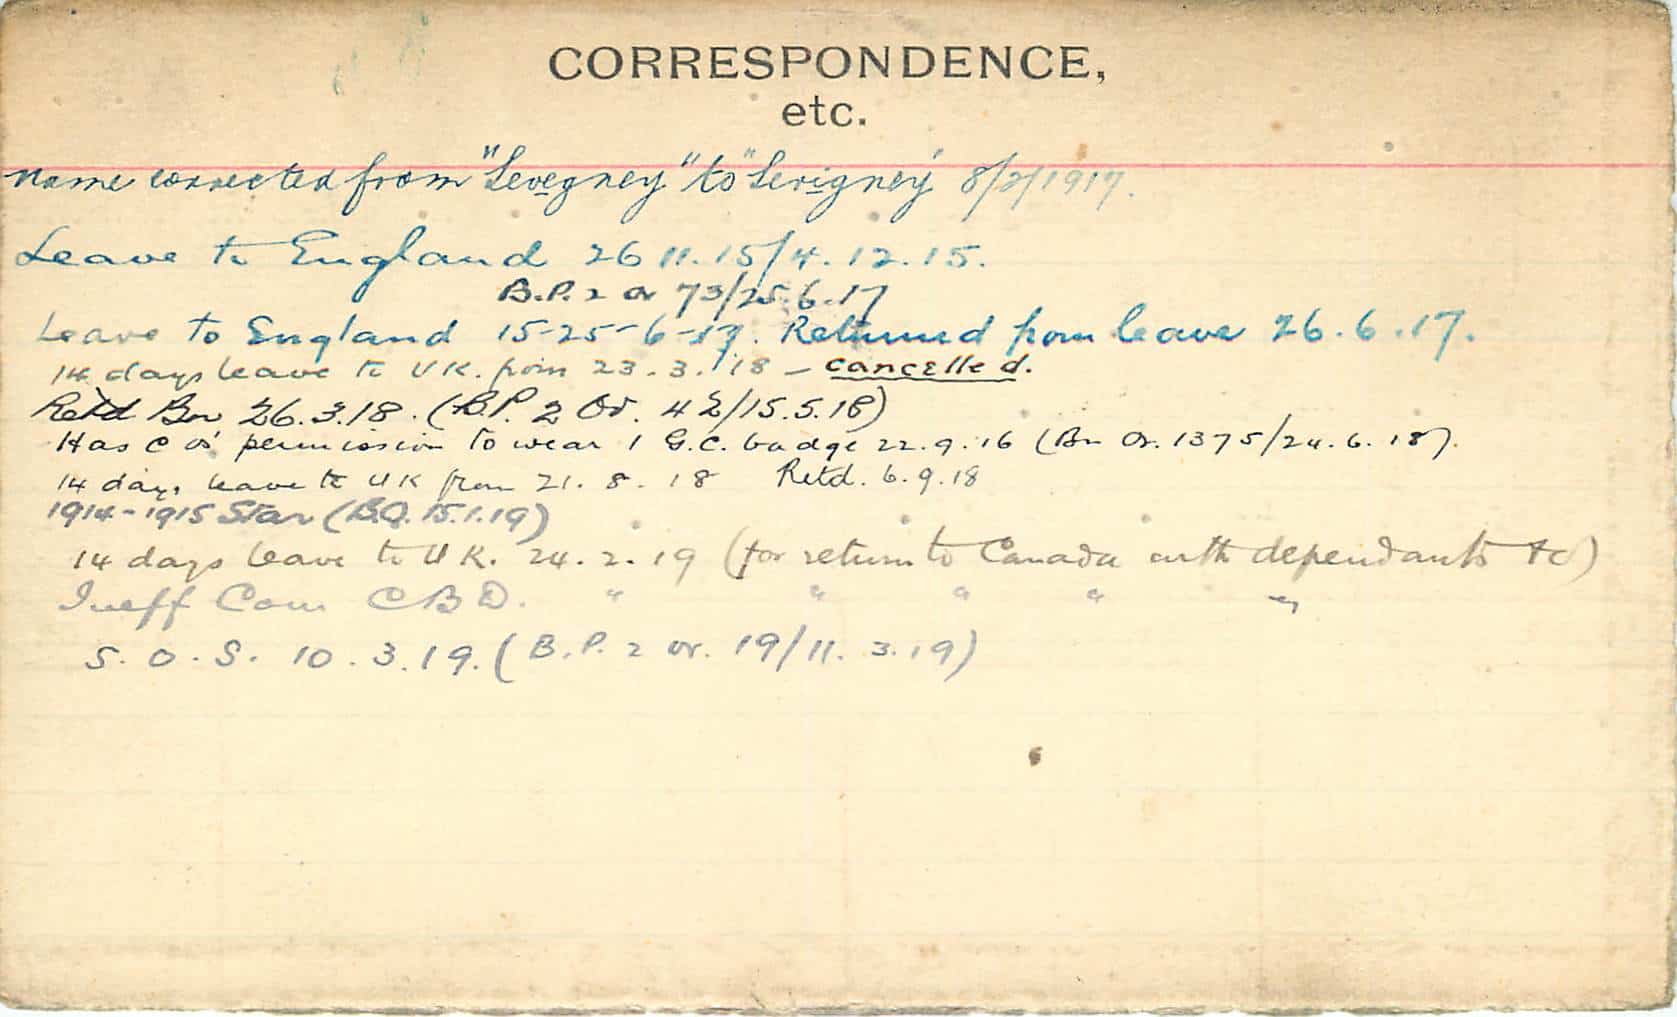 CORRESPONDENCE,
etc.
Name corrected from "Levegney" to "Levigney" 8/2/1917.
Leave to England 26 11.15/4.12.15.
B.P. 2 Or 73/25.6.17
Leave to England 15-25-6-17. Returned from leave 26.6.17.
14 days leave to UK. from 23.3.18 - cancelled.
Retd Bn 26.3.18. (B.P. 2 Or. 42/15.5.18)
Has C Os' permission to wear 1 G.C. badge 22.9.16 (Bn Or. 1375/24.6.18).
14 days leave to UK from 21.8.18 Retd. 6.9.18
1914-1915 Star (B.O. 15.1.19)
14 days leave to UK. 24.2.19 (for return to Canada with dependants &c)
Ineff Com CBD. " " " " "
S.O.S. 10.3.19. (B.P. 2 Or. 19/11.3.19)